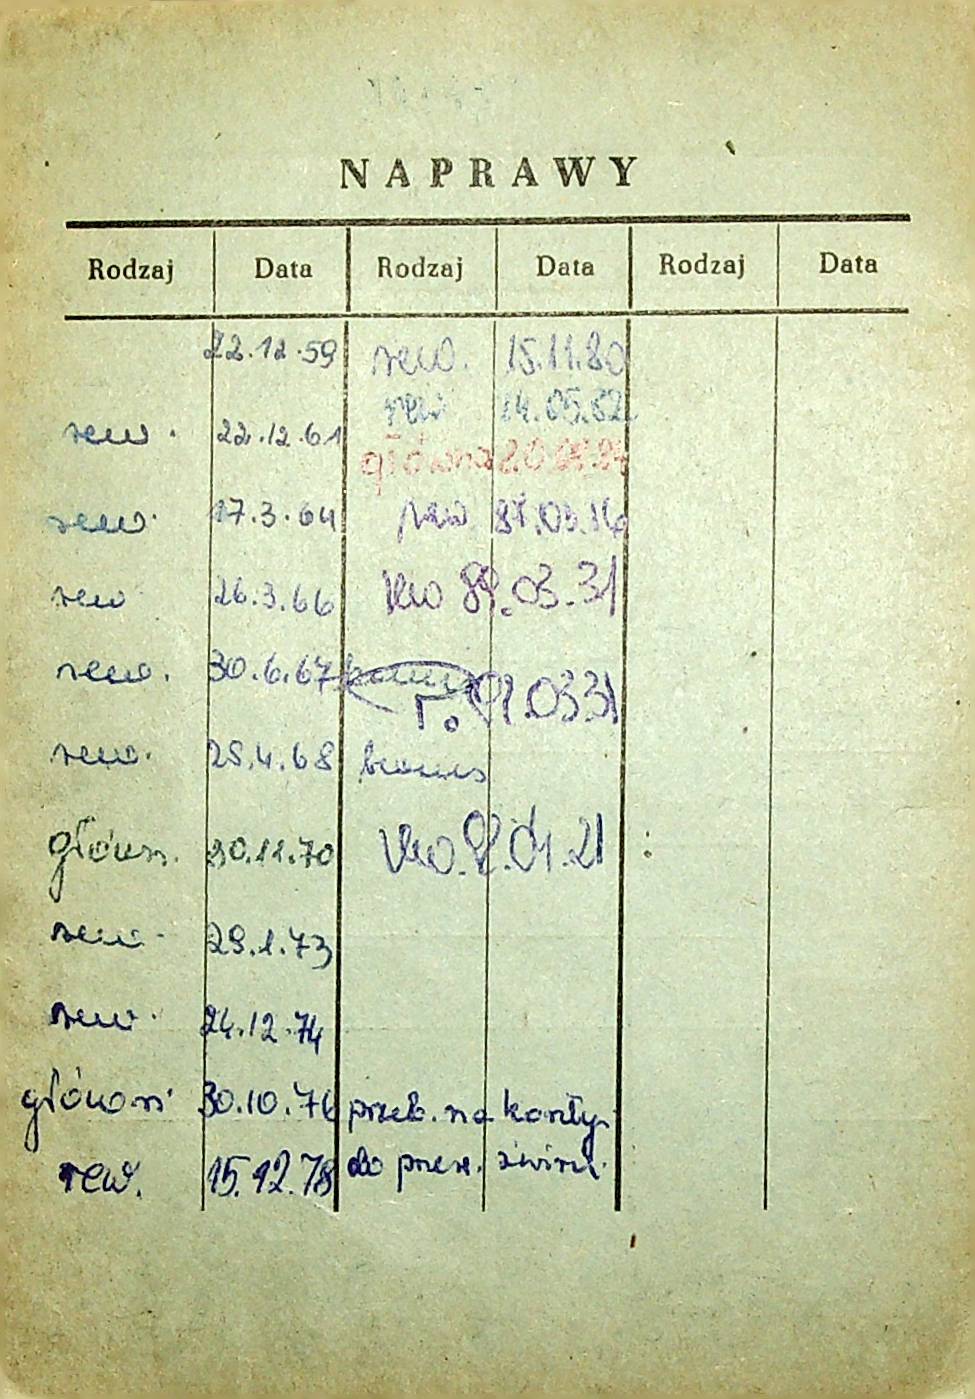 NAPRAWY
Rodzaj Data Rodzaj Data Rodzaj Data
22.12.59 rew. 15.11.80
rew 14.05.82
rew. 22.12.61
główna
rew. 17.3.64 rew 87.03.16
rew 26.3.66 rew 89.03.31
rew. 30.6.67
r. 91.0331
rew. 25.4.68
główn. 30.11.70 rew. 92.01.21
rew. 29.1.73
rew. 24.12.74
główna 30.10.76 przeb. na
rew. 15.12.78 do